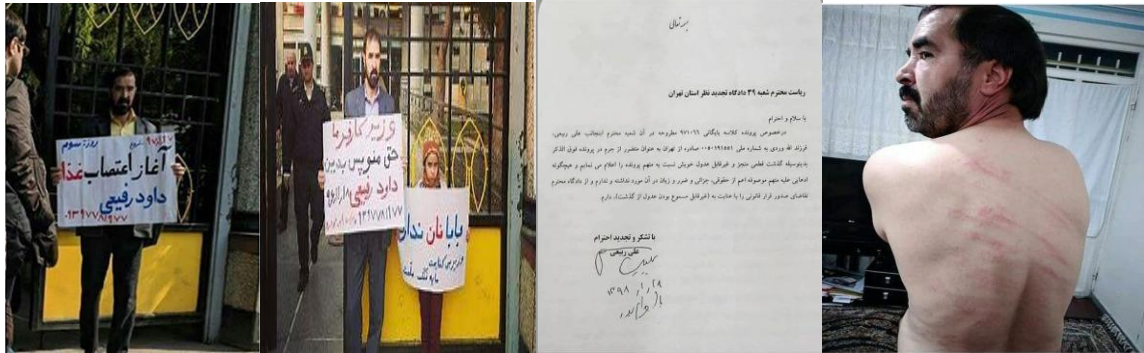 روز: سوم
آغاز اعتصاب غذا
داود رفیعی
وزیر کافر ما
حق مو پس بدین
داود رفیعی
بابا نان ندارد
بسمه تعالی
ریاست محترم شعبه ۳۹ دادگاه تجدید نظر استان تهران
با سلام و احترام
درخصوص پرونده کلاسه بایگانی ۹۷۱۰۶۶ مطروحه در آن شعبه محترم اینجانب علی ربیعی،
فرزند الله وردی به شماره ملی صادره از تهران به عنوان متضرر از جرم در پرونده فوق الذکر
بدینوسیله گذشت قطعی منجز و غیرقابل عدول خویش نسبت به متهم پرونده را اعلام می نمایم و هیچگونه
ادعایی علیه متهم موصوف اعم از حقوقی، جزائی و ضرر و زیان در آن مورد نداشته و ندارم و از دادگاه محترم
تقاضای صدور قرار قانونی را با عنایت به (غیرقابل مسموع بودن عدول از گذشت)، دارم.
با تشکر و تجدید احترام
علی ربیعی